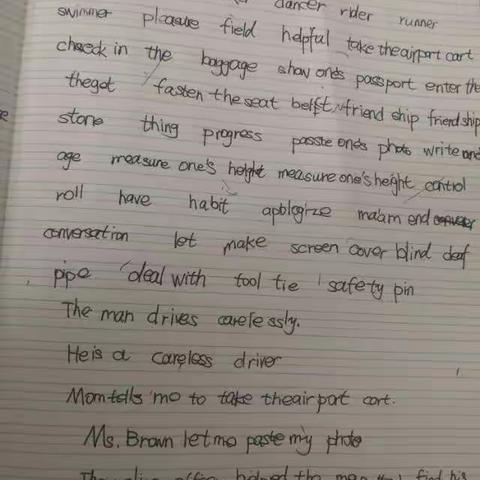 dancer rider runner
swimmer pleasure field helpful take the airport cart
check in the baggage show one's passport enter the
thegot fasten the seat belt friend ship friendship
stone thing progress passte one's photo write one
age measure one's height measure one's height control
roll have habit apologize ma'am end
conversation let make screen cover blind deaf
pipe deal with tool tie safety pin
The man drives carelessly.
He is a careless driver
Mom tells me to take the airport cart.
Ms. Brown let me paste my photo
helped the man find his